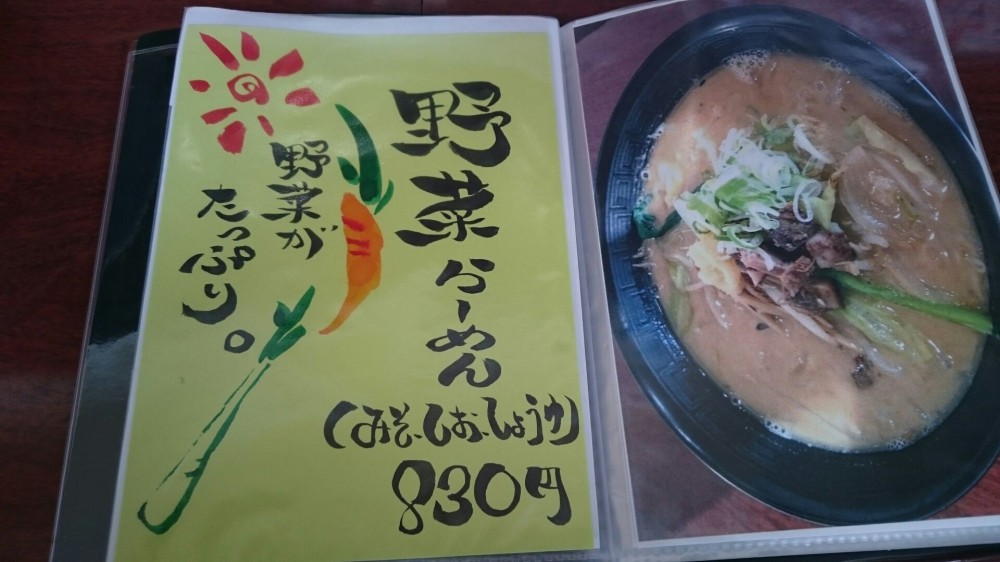 野菜らーめん
(みそ・しお・しょうゆ)
830円
野菜が
たっぷり。